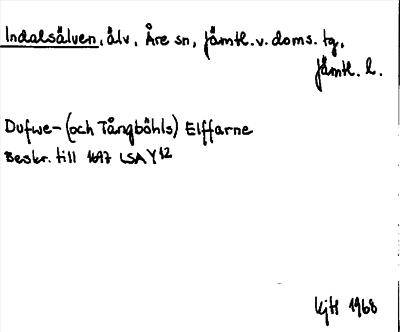 Indalsälven, älv, Åre sn, Jämtl. v. doms. tg,
Jämtl. l.
Dufwe- (och Tångböhls) Elffarne
Beskr. till 1697 LSA Y12
KjH 1968